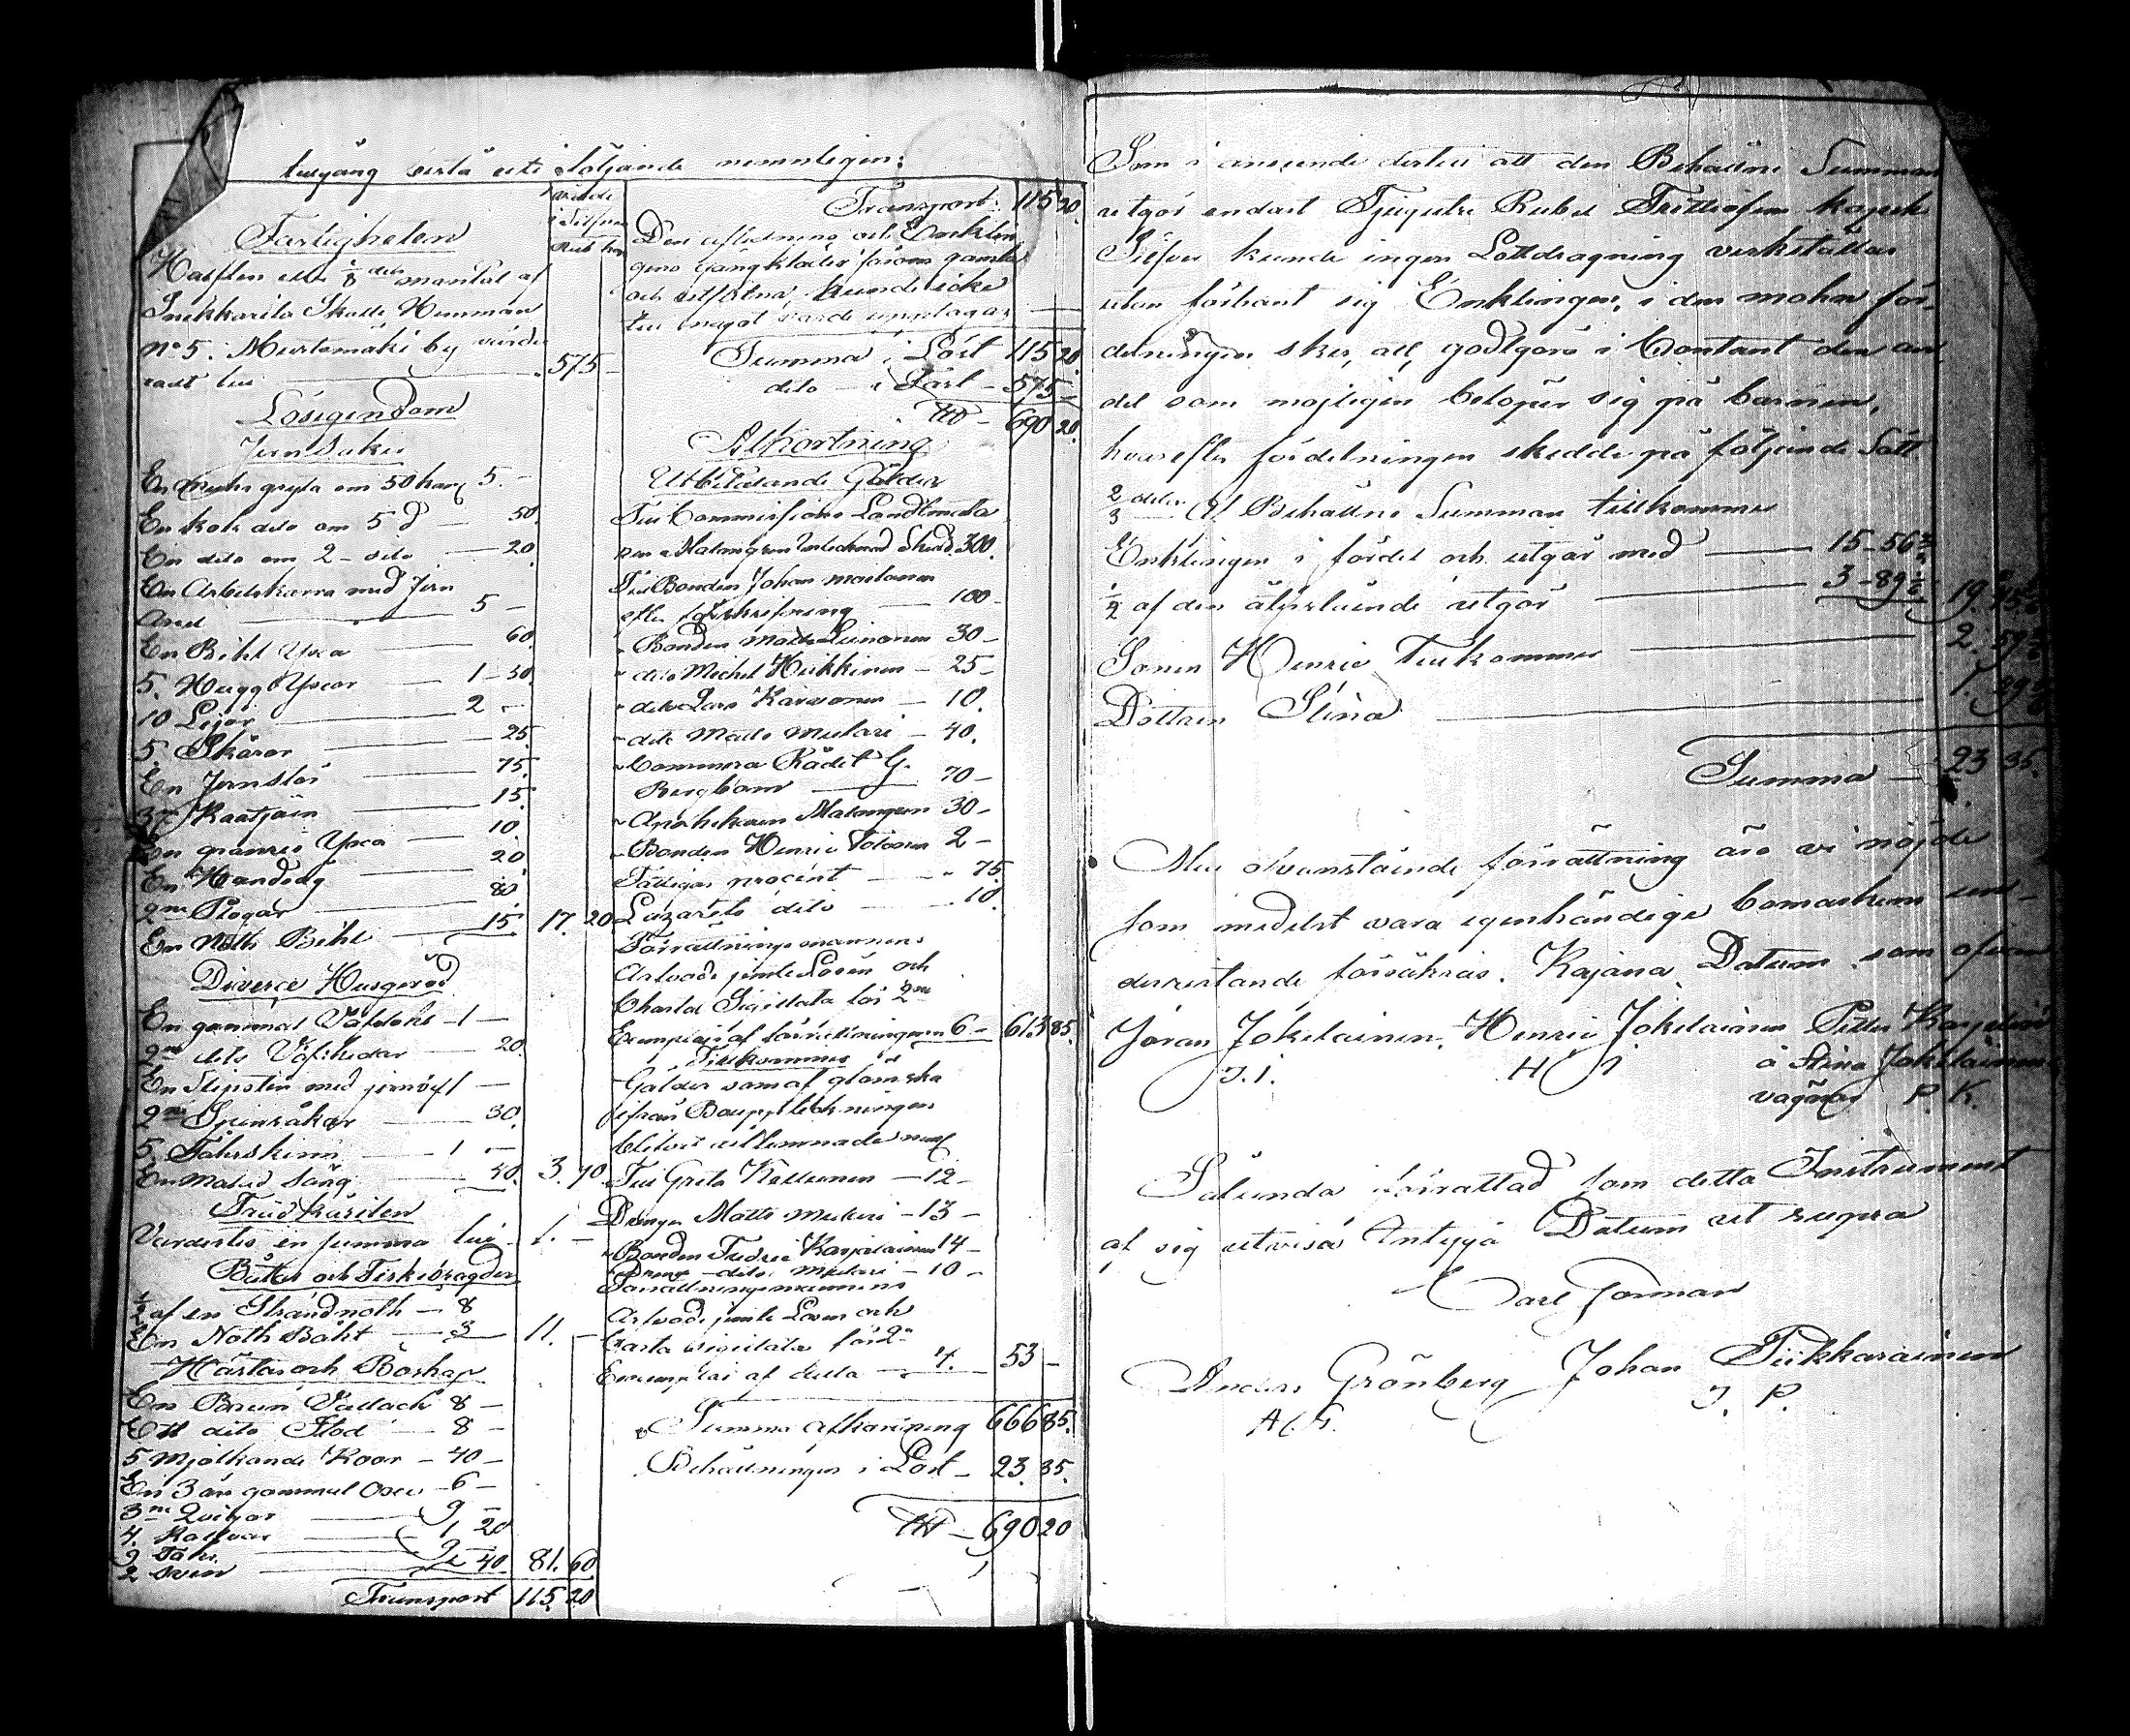 tillgång bestå uti följande nemnligen:
Värde
i Silfver
Rub kop
Fastigheten
Hälften eller 1/8 dels mantal af
Pikkarila Skatte Hemman
No 5. Murtomäki by värde
radt till 575 –
Lösegendom
Jernsaker
En gryta om 50 kan 5. –
En kok dito om 5 d 50.
En dito om 2 – dito 20.
En Arbetskarra med Jern
Axel 5 –
En Bihl Yxa 60.
5. Hugg Yxor 1 – 50.
10 Lijor 2 –
5. Skäror 25.
En Jernstör 75.
15.
En Yxa 10.
En Handsåg 20.
2ne Plogar 80.
En Nöth Bihl 15 17. 20
Diverse Husgeråd
En gammal 1 –
2ne dito 20.
En Slipsten med 1 –
2ne Spinråkar 30.
5. Fårskinn 1 –
En Målad Säng 40. 3. 90.
Trädkärilen
Värderades en summa till 1. –
Båtar och Fiskebragder
1/2 af en Strandnoth – 8
En Noth Båht 3 11. –
Hästar och Boskap
En Brun Vallack 8 –
Ett dito Stod 8 –
5 Mjölkande Koor – 40 –
En 3 år gammal Oxe – 6 –
3ne Qvigor 9 –
4. Kalfvar 1, 20
9 Får
2 Svin 40. 81. 60
Transport 115. 20
Transport: 115 20.
Den aflednes och Enklin
gens gångkläder såsom gamla
och utslitna, kunde icke
till något värde upptagas –
Summa i Löst 115 20.
dito – i Fast – 575 –
690 20.
Afkortning
Utbetalande Gälder
Till Commissions Landtmäta
ren Malmgren 300.
Till Bonden Johan
efter förskrifning 100 –
„ Bonden Leinonen 30 –
„ dito Michel Heikkinen – 25 –
„ dito Lars Karvonen – 10.
„ dito Matts Mulari – 40.
„ Commerce Rådet G.
Bergbom 70 –
„ Apothekaren Malmgren 30 –
„ Bonden Henric Tolonen 2 –
Fattigas procent 75.
Lazarets dito 10.
Förrättningsmannens
Arfvode jemte Lösen och
Charta Sigillata för 2ne
Exemplar af förrättningen 6 – 613 85.
Tillkommer
Gälder som af glömska
ifrån Bouppteckningen
blifvit utlemnade
Till Greta Kettunen – 12 –
Drängen Matts Mulari – 13 –
„ Bonden Fredric Karjalainen 14 –
„ Dräng – dito Mulari – 10 –
Förrättningsmannens
Arfvode jemte Lösen och
Carta Sigillata för 2ne
Exemplar af detta 4. 53 –
Summa afkortning 666 85.
Behållningen i Löst – 23. 35.
690 20
Som i anseende dertill att den Behållne Summan
utgör endast Tjugutre Rubel Trettiofem kopek
Silfver kunde ingen Lottdragning verkställas
utan förbant sig Enklingen, i den mohn för-
delningen sker, att godtgöra i Contant den an
del som möjligen belöper sig på barnen,
hvarefter fördelningen skedde på följande Sätt
2/3 delar af Behållne Summan tillkommer
Enklingen i fördel och utgör med 15 – 56 2/3
1/2 af den återstående utgör 3 – 89 1/6 19. 45 5/6
Sonen Henric Tillkommer 2. 59
Dottren Stina 1. 29
Summa – 23 35.
Med ofvanstående förrättning äro vi nöjde
som medelst vara egenhändige bomärken un-
dertestande försäkras. Kajana, Datum som ofvan
Jöran Jokelainen. Henric Jokelainen Petter Karjalainen
J. J. H J å Stina Jokelainens
vägnar P. K.
Sålunda förrättad som detta Instrument
af sig utvisa Intyga Datum ut supra
Carl Forman
Anders Grönberg Johan Pikkarainen
A. G. J. P.